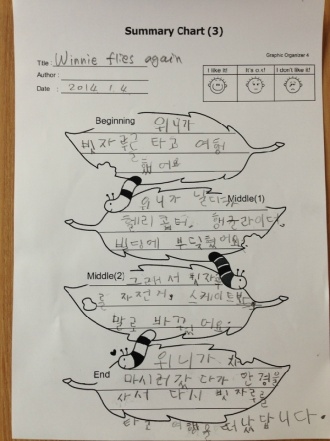 Summary Chart (3)
Graphic Organizer 4
Title : Winnie flies again
Author :
Date : 2014 1 4
I like it!
It's o.k!
I don't like it!
Beginning
위니가
빗자루를 타고 여행
을 했어요
Middle(1)
위니가 날다가
헬리콥터, 행글라이더
빌딩에 부딪혔어요
Middle(2)
그래서 빗자루
를 자전거, 스케이트보
말로 바꿨어요
End
위니가 차
마시러 갔다가 안경을
사서 다시 빗자루를
타고 떠났답니다.